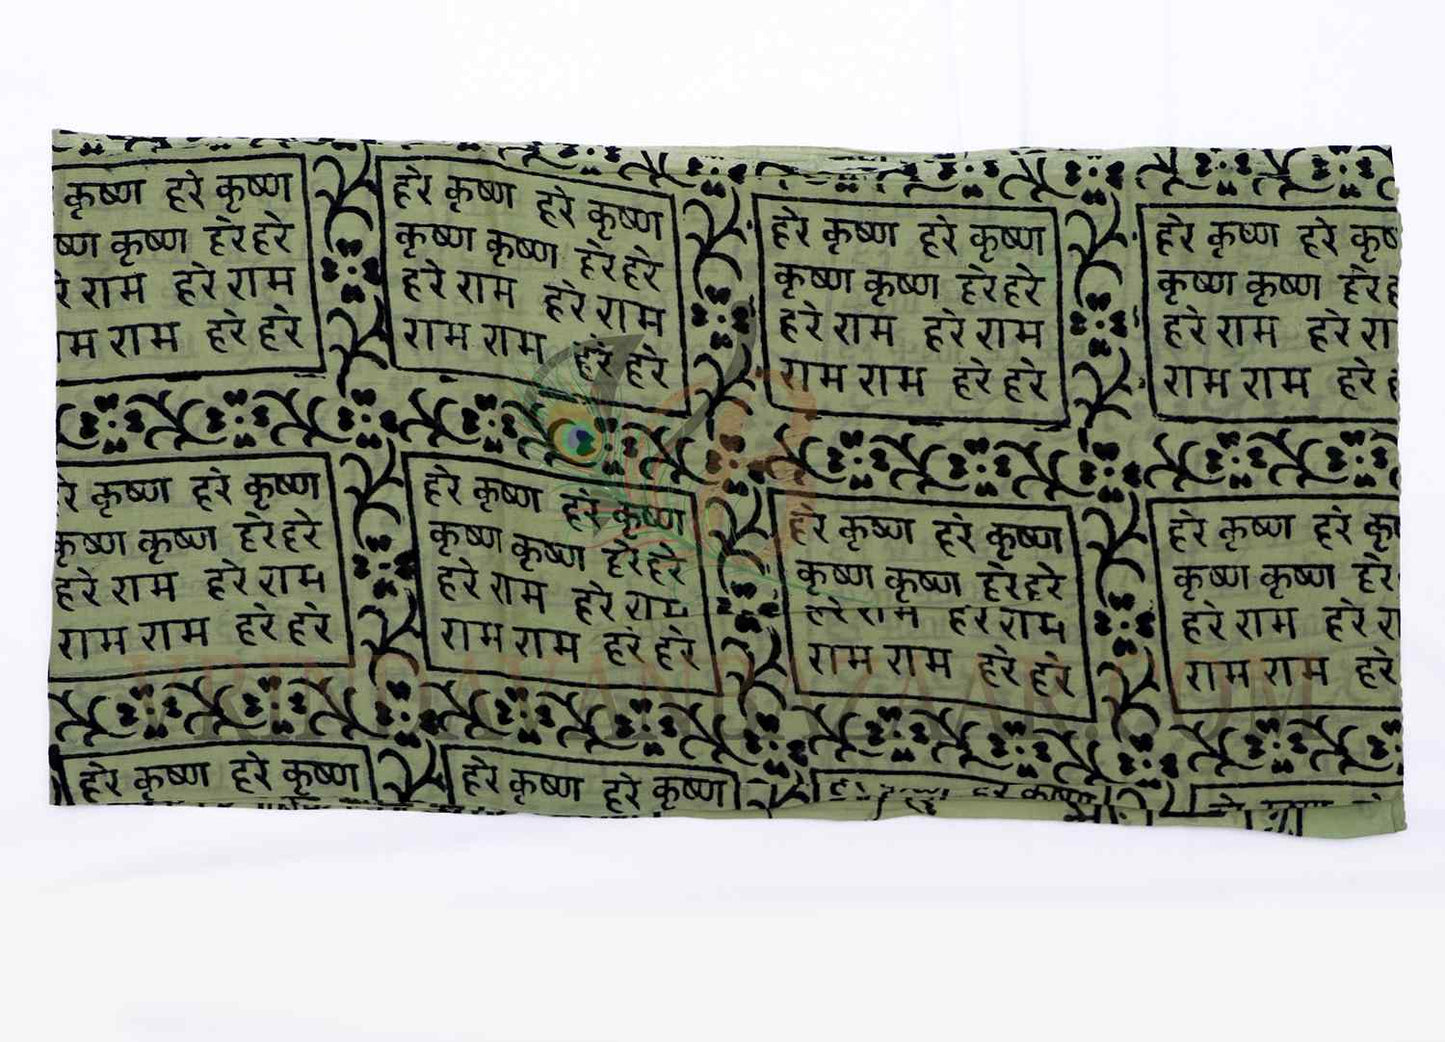 कृष्ण हरे कृष्ण
कृष्ण हरे हरे
राम हरे राम
राम हरे हरे
हरे कृष्ण हरे कृष्ण
कृष्ण कृष्ण हरे हरे
हरे राम हरे राम
राम राम हरे हरे
हरे कृष्ण हरे कृष्ण
कृष्ण कृष्ण हरे हरे
हरे राम हरे राम
राम राम हरे हरे
हरे कृष्ण हरे
कृष्ण कृष्ण हरे
हरे राम हरे
राम राम हरे
कृष्ण हरे कृष्ण
कृष्ण कृष्ण हरे हरे
हरे राम हरे राम
राम राम हरे हरे
हरे कृष्ण हरे कृष्ण
कृष्ण कृष्ण हरे हरे
हरे राम हरे राम
राम राम हरे हरे
हरे कृष्ण हरे कृष्ण
कृष्ण कृष्ण हरे हरे
हरे राम हरे राम
राम राम हरे हरे
हरे कृष्ण हरे
कृष्ण कृष्ण हरे
हरे राम हरे
राम राम हरे
हरे कृष्ण हरे कृष्ण
हरे कृष्ण हरे कृष्ण
VRINDAVANBAZAAR.COM